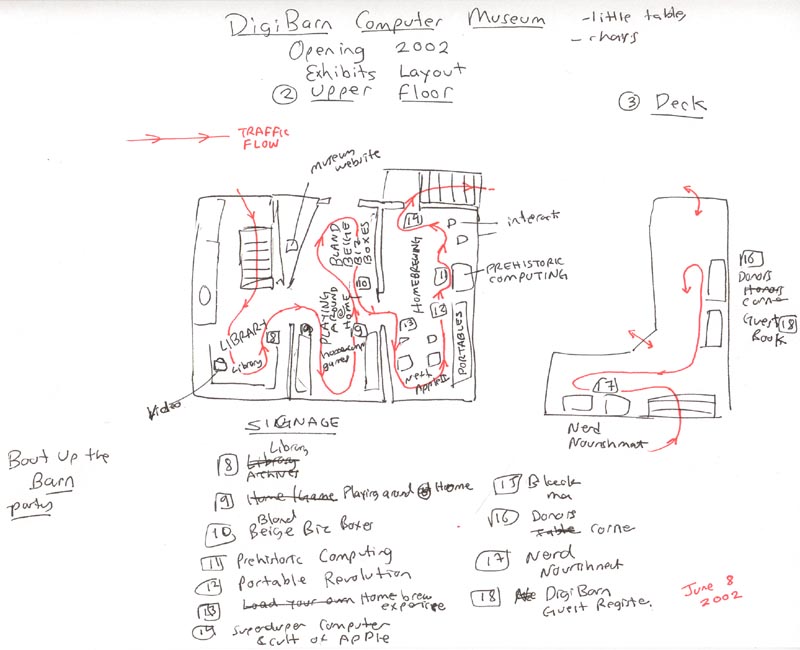 DigiBarn Computer Museum
Opening 2002
Exhibits Layout
② Upper Floor
- little tables
- chairs
③ Deck
TRAFFIC
FLOW
museum
website
BLAND
BEIGE
BIZ
BOXES
10
PLAYING
AROUND
@
HOME
LIBRARY
Library
8
9
9
Video
HOMEBREWING
14
D
D
interact
11
PREHISTORIC
COMPUTING
12
13
PORTABLES
Apple II
16
Donors
Honors
corne
Guest 18
Book
17
Nerd
Nourishmat
SIGNAGE
Library
8 Library
Archives
9 Home Game Playing around @ Home
Bland
10 Beige Biz Boxes
11 Prehistoric Computing
12 Portable Revolution
13 Load your own Homebrew
experience
14 Superduper Computer
& cult of Apple
15
16 Donors
Table corne
17 Nerd
Nourishmat
18 DigiBarn
Guest Register.
Bout up the
Barn
party
June 8
2002